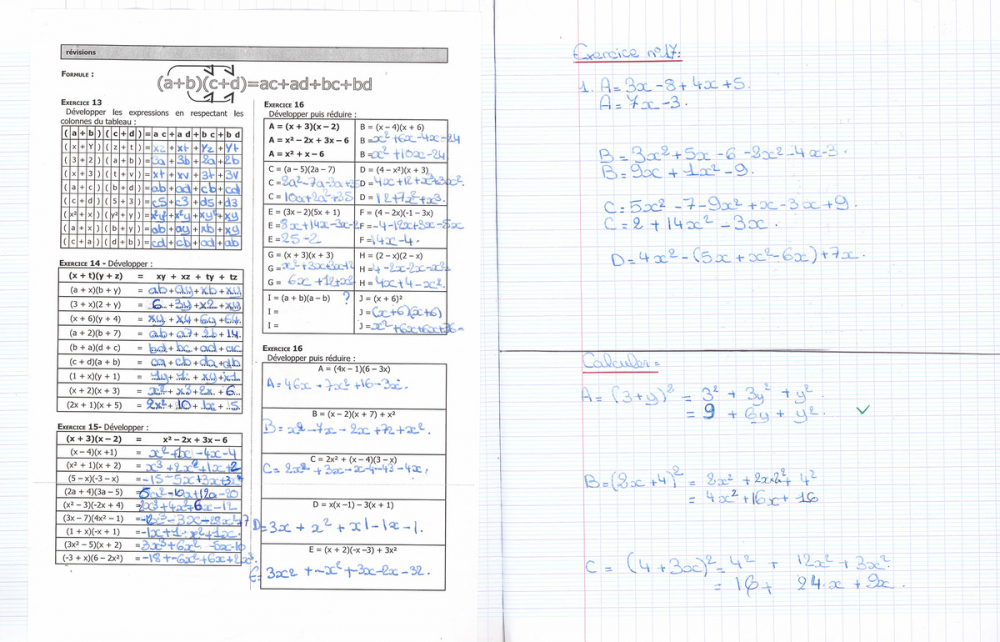 révisions
FORMULE :
(a+b)(c+d)=ac+ad+bc+bd
EXERCICE 13
Développer les expressions en respectant les
colonnes du tableau :
(a+b)(c+d)=ac+ad+bc+bd
(x+Y)(z+t)=xz+xt+Yz+Yt
(3+2)(a+b)=3a+3b+2a+2b
(x+3)(t+v)=xt+xv+3t+3v
(a+c)(b+d)=ab+ad+cb+cd
(c+d)(5+3)=c5+c3+d5+d3
(x²+x)(y²+y)=
(a+x)(b+y)=ab+ay+xb+xy
(c+a)(d+b)=cd+cb+ad+ab
EXERCICE 14 - Développer :
(x + t)(y + z) = xy + xz + ty + tz
(a + x)(b + y) = ab + ay + xb + xy
(3 + x)(2 + y) = 6 + 3y + x2 + xy
(x + 6)(y + 4) = xy + x4 + 6y +
(a + 2)(b + 7) = ab + a7 + 2b + 14
(b + a)(d + c) = bd + bc + ad + ac
(c + d)(a + b) = ca + cb + da + db
(1 + x)(y + 1) =
(x + 2)(x + 3) = x² + x3 + 2x + 6
(2x + 1)(x + 5) = 2x² + 10 + 1x + 5
EXERCICE 15- Développer :
(x + 3)(x – 2) = x² – 2x + 3x – 6
(x – 4)(x +1) = -4x-4
(x² + 1)(x + 2) = x³+2x²+1x+2
(5 – x)(-3 – x) = -15-5x+3x+
(2a + 4)(3a – 5) = -10a+12a-20
(x² – 3)(-2x + 4) = +4x²+6x-12
(3x – 7)(4x² – 1)
(1 + x)(-x + 1) =
(3x² – 5)(x + 2) = 3x³+6x²-5x-10
(-3 + x)(6 – 2x²) = -18+-6x²+6x+
EXERCICE 16
Développer puis réduire :
A = (x + 3)(x – 2)
A = x² – 2x + 3x – 6
A = x² + x – 6
B = (x – 4)(x + 6)
B = x²+6x-4x-24
B = x²+10x-24
C = (a – 5)(2a – 7)
C =
C = 10a+2a²+35
D = (4 – x²)(x + 3)
D = 4x+12+x³+3x²
D = 12+7x²+x3
E = (3x – 2)(5x + 1)
E = 8x+14x-3x-2
E = 25-2
F = (4 – 2x)(-1 – 3x)
F = -4-12x+3x-5x
F = 14x-4
G = (x + 3)(x + 3)
G =
G = 6x+12+x²
H = (2 – x)(2 – x)
H = 4-2x-2x-x²
H = 4x+4-x²
I = (a + b)(a – b) ?
I =
I =
J = (x + 6)²
J = (x+6)(x+6)
J = x²+6x+6x+36
EXERCICE 16
Développer puis réduire :
A = (4x – 1)(6 – 3x)
A = 46x - 7x² + 16 - 3x
B = (x – 2)(x + 7) + x²
B = x² - 7x - 2x + 72 + x².
C = 2x² + (x – 4)(3 – x)
C = 2x² + 3x - x - 4 - 43 - 4x,
D = x(x – 1) – 3(x + 1)
D = 3x + x² + x1 - 1x - 1.
E = (x + 2)(-x –3) + 3x²
E = 3x² + -x² + 3x - 2x - 32.
Exercice n°17:
1. A = 3x - 8 + 4x + 5.
A = 7x - 3.
B = 3x² + 5x - 6 - 2x² - 4x - 3.
B = 9x + 1x² - 9.
C = 5x² - 7 - 9x² + x - 3x + 9.
C = 2 + 14x² - 3x.
D = 4x² - (5x + x² - 6x) + 7x.
Calculer =
A = (3+y)² = 3² + 3y² + y²
= 9 + 6y + y². ✓
B = (2x+4)² = 2x² + 2x×2² + 4²
= 4x² + 16x + 16
C = (4+3x)² = 4² + 12x² + 3x²
= 16 + 24x + 9x.